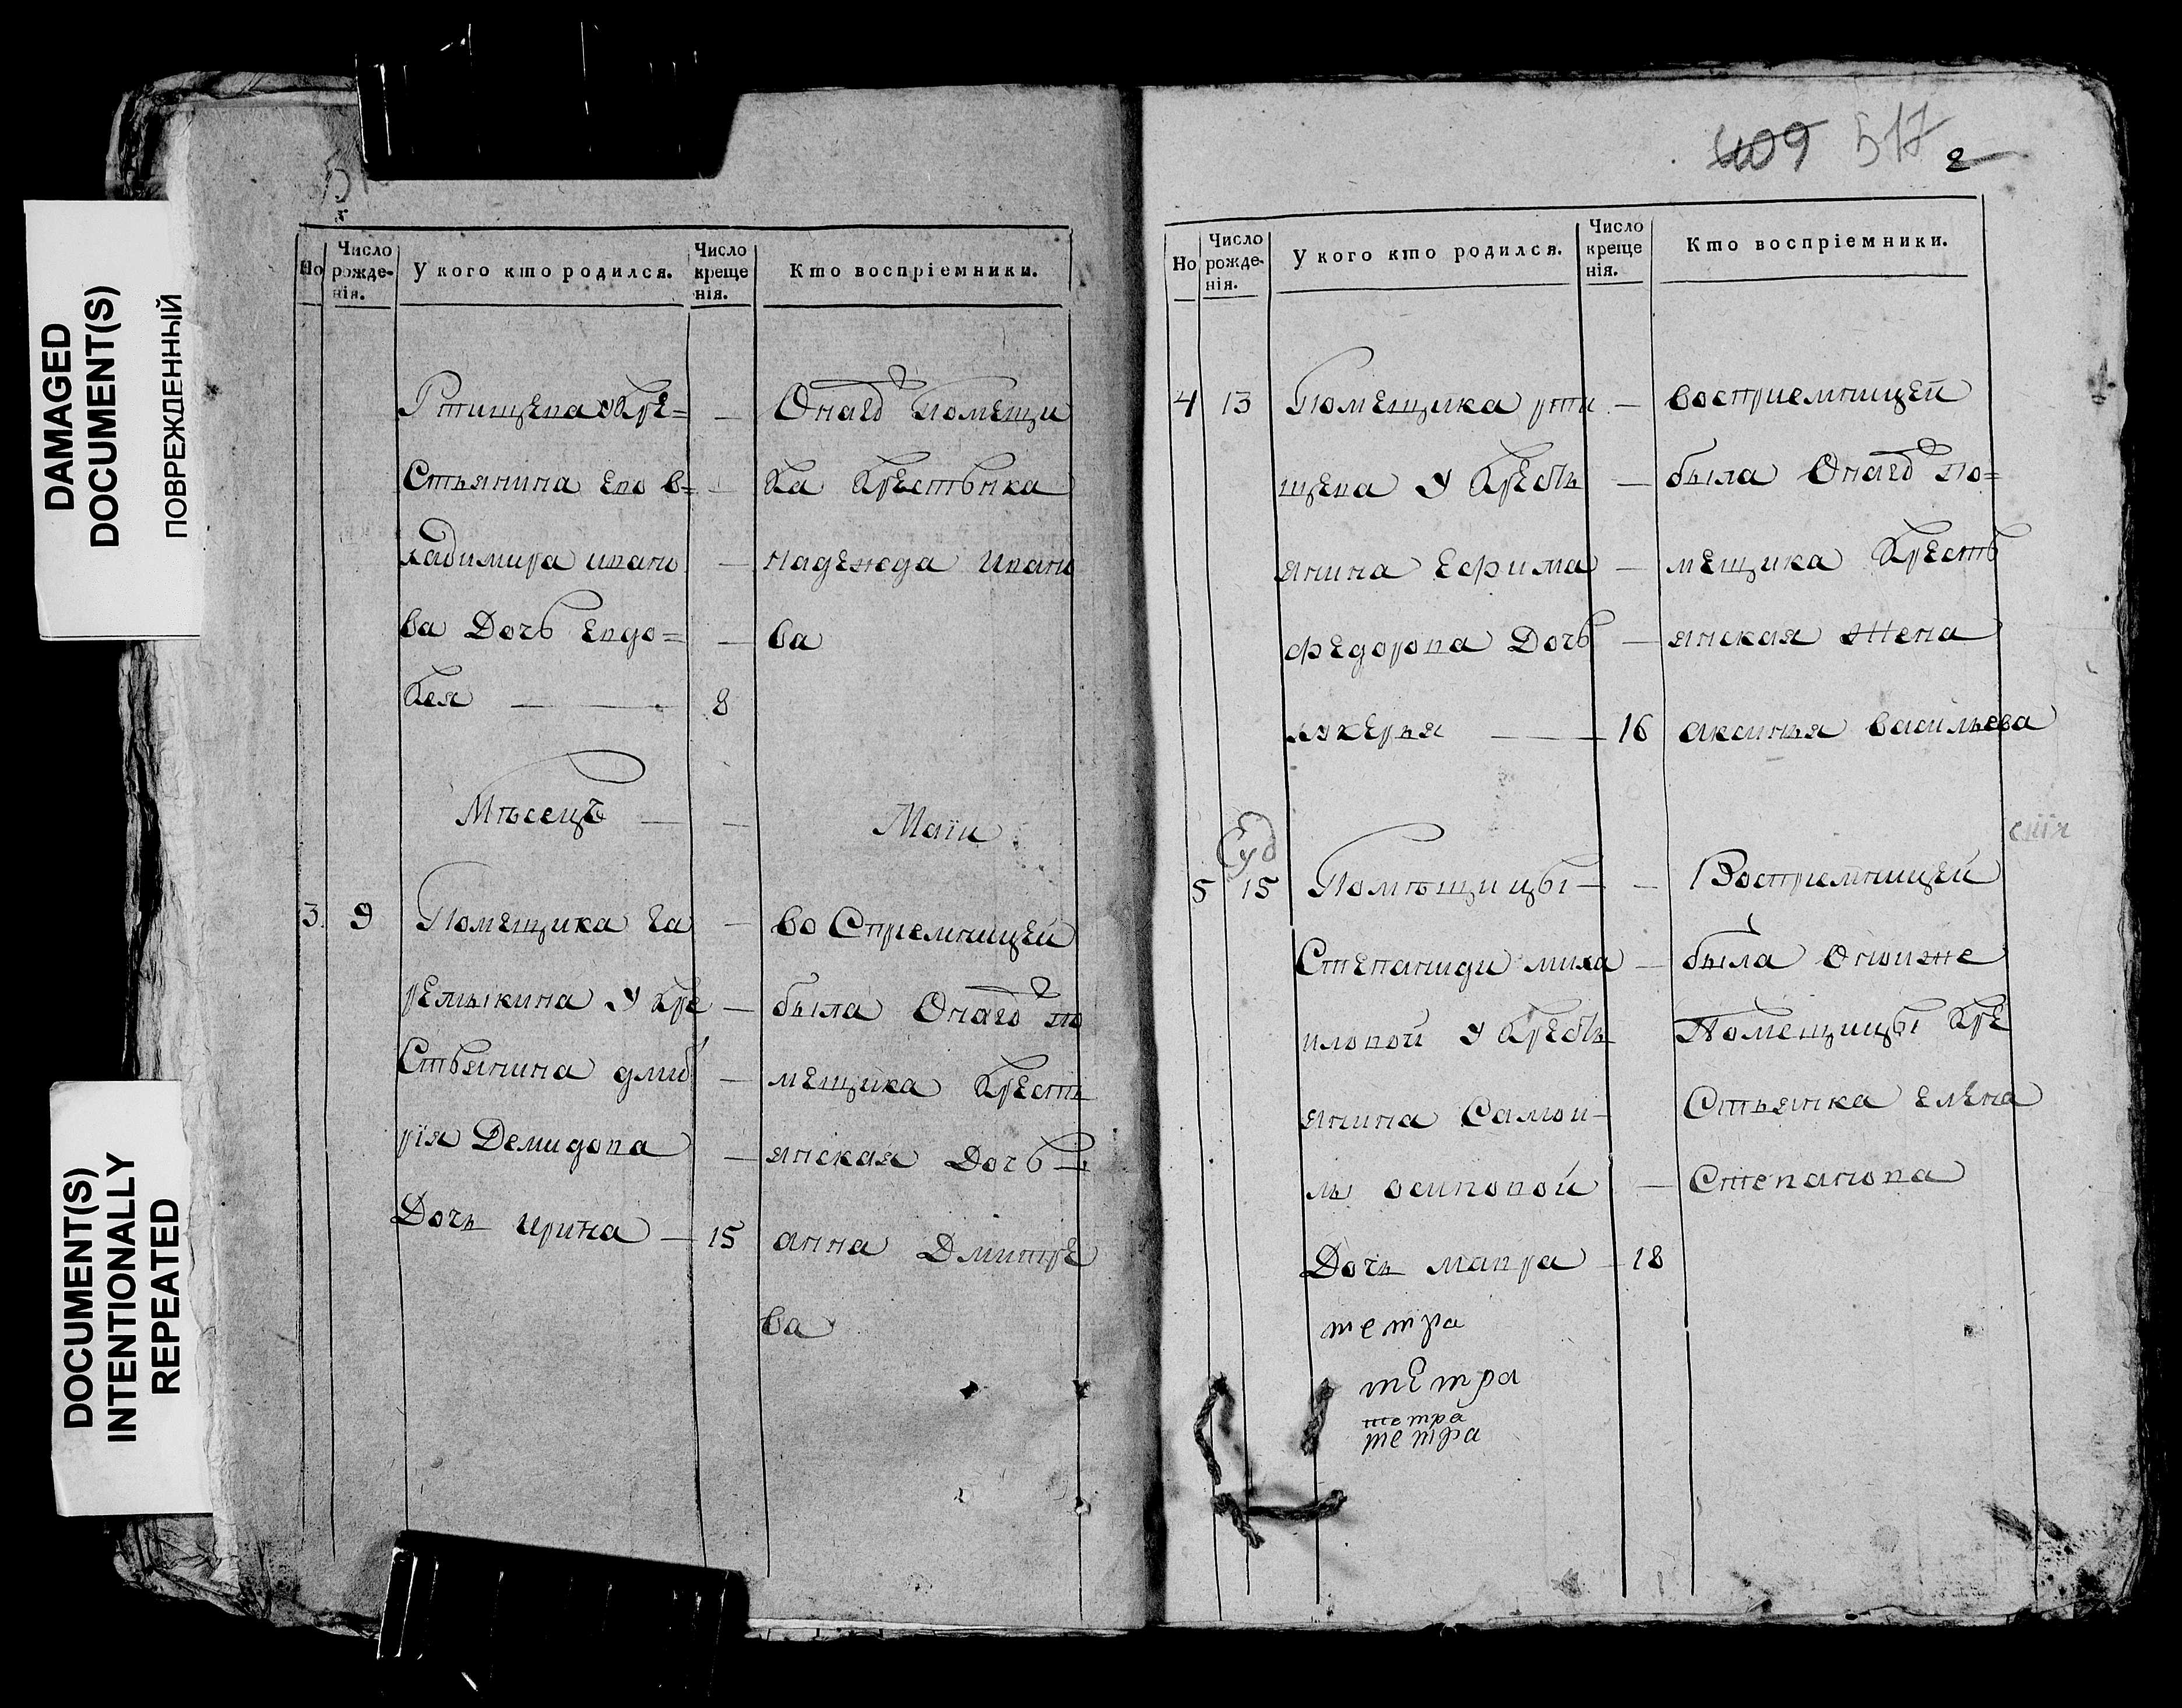 DAMAGED
DOCUMENT(S)
ПОВРЕЖДЕННЫЙ
DOCUMENT(S)
INTENTIONALLY
REPEATED
Но
Число рожденія.
У кого кто родился.
Число крещенія.
Кто воспріемники.
Ртищева У Кре=
Стьянина Его в=
ладимира ивано
ва Дочь Евдо=
Кея 8
Онаго помещи
Ка Крестьнка
надежда Ивано
ва
Мѣсецъ Маіи
3. 9 Помещика Га
релыкина У Кре
Стьянина дмит
рія Демидова
Дочь ирина 15
во Сприемницей
была Онаго по
мещика Кресть
янская Дочь
анна Дмитре
ва
409 517 2
Но
Число рожденія.
У кого кто родился.
Число крещенія.
Кто воспріемники.
4 13 Помещика рти
щева У Кресть
янина Ефима
федорова Дочь
лукерья 16
восприемницей
была Онаго по=
мещика Кресть
янская Жена
аксинья васильева
Суд
5 15 Помѣщицы
Степаниди миха
иловой У Кресть
янина Самои
лы осиповой
Дочь мавра 18
Восприемницей
была Оной же
Помещицы Кре
Стьянка елена
Степанова
тетра
тетра
тетра
тетра